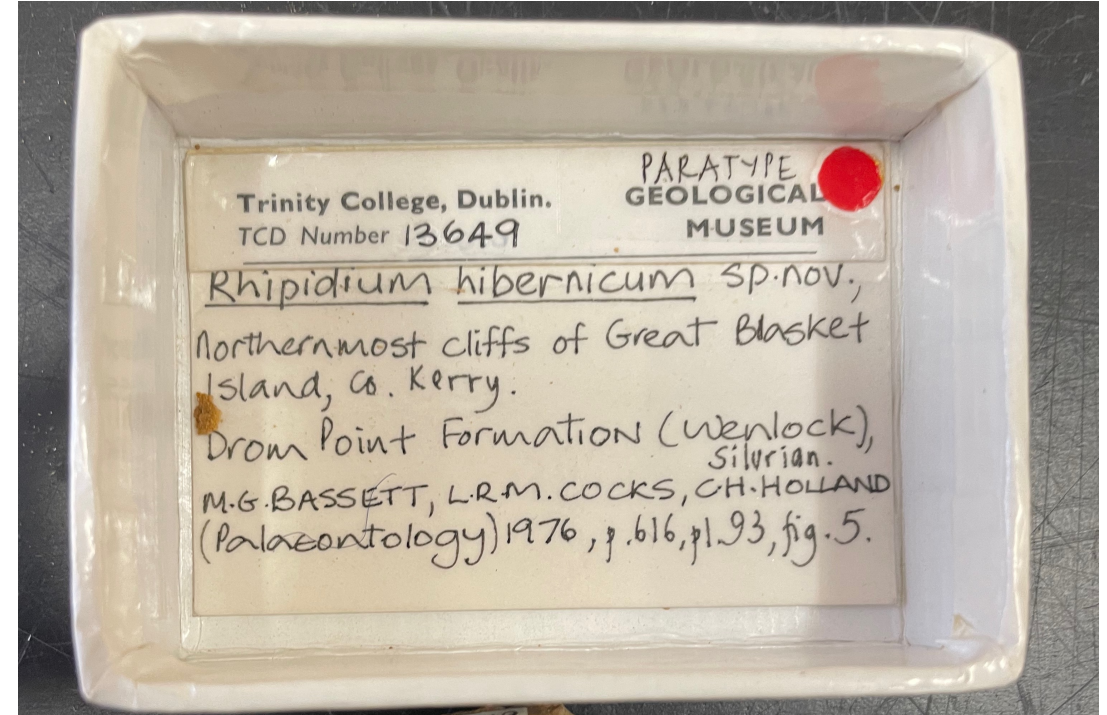 PARATYPE
Trinity College, Dublin. GEOLOGICAL
TCD Number 13649 MUSEUM
Rhipidium hibernicum sp.nov.,
Northernmost cliffs of Great Blasket
Island, Co. Kerry.
Drom Point Formation (Wenlock),
Silurian.
M.G.BASSETT, L.R.M.COCKS, C.H.HOLLAND
(Palaeontology) 1976, p.616, pl.93, fig.5.